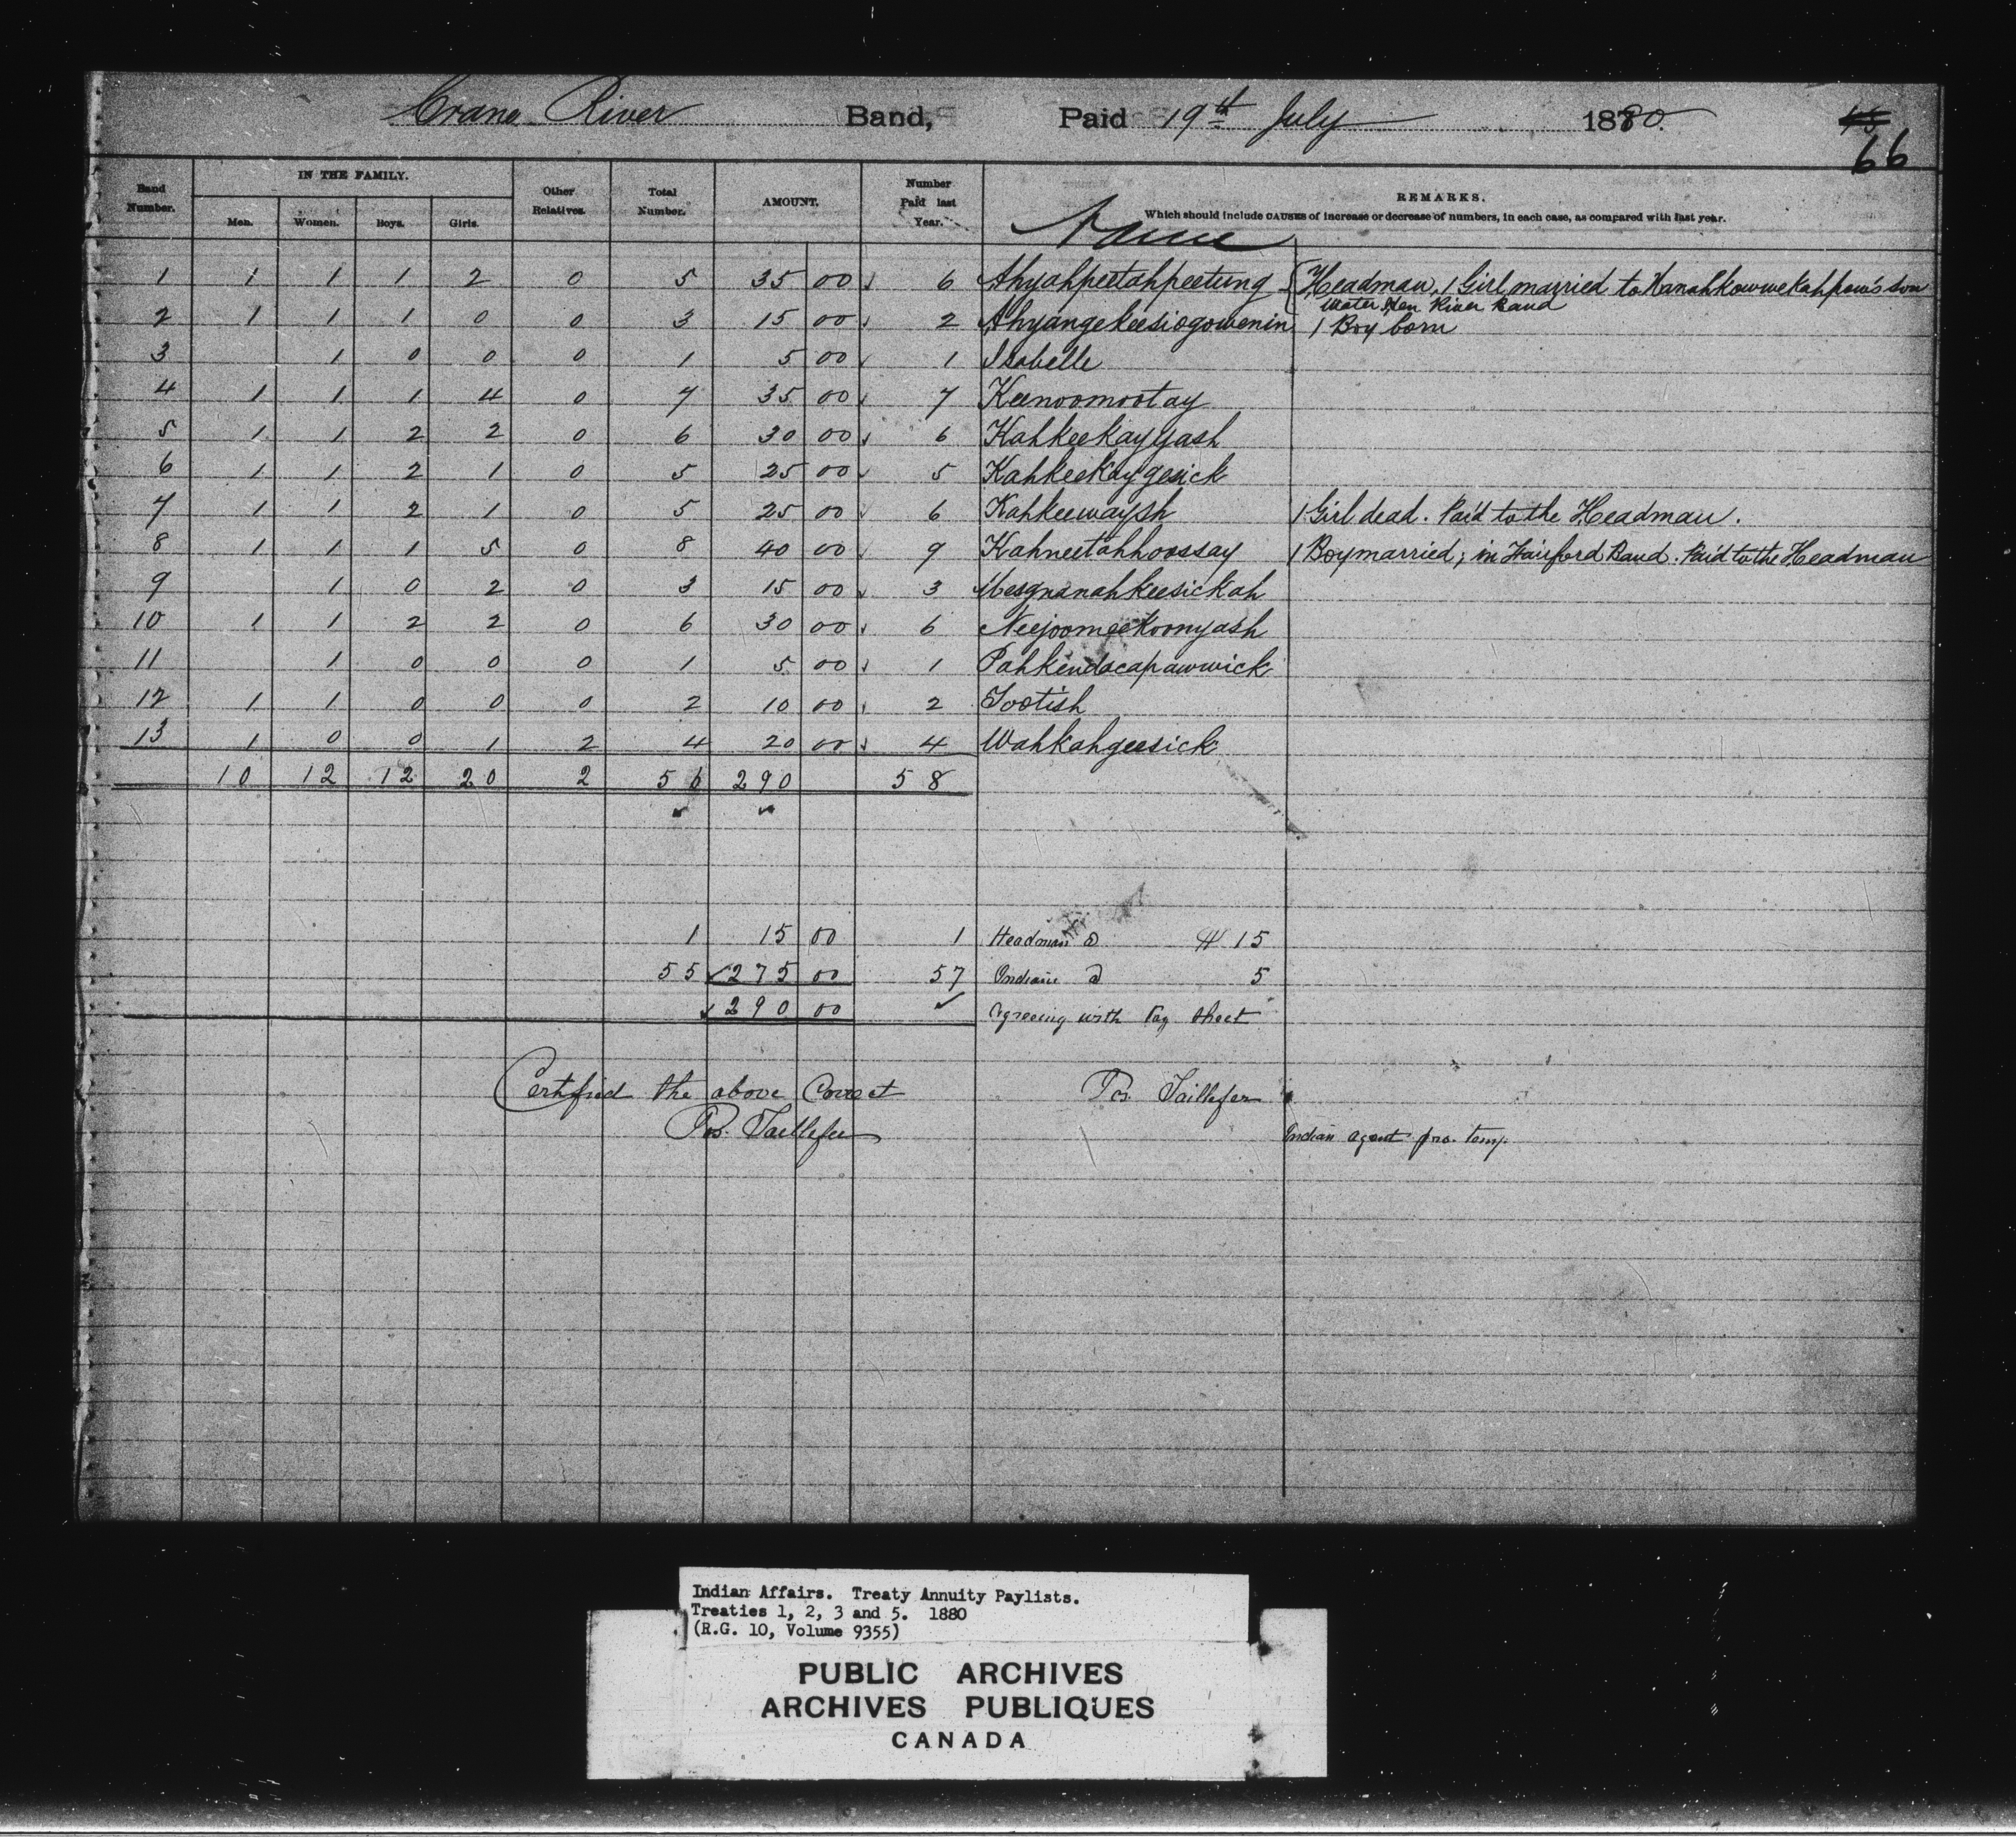 Crane River Band, Paid 19th July 1880.
66
Band Number. IN THE FAMILY. Men. Women. Boys. Girls. Other Relatives. Total Number. AMOUNT. Number Paid last Year. Name REMARKS.
Which should include CAUSES of increase or decrease of numbers, in each case, as compared with last year.
1 1 1 1 2 0 5 35 00 6 Ahyahpeetahpeetung Headman, 1 Girl married to Kanahkowwekahpow's son
Water Hen River Band
2 1 1 1 0 0 3 15 00 2 Ahyangekeesiogowenin 1 Boy born
3 1 0 0 0 1 5 00 1 Isabelle
4 1 1 1 4 0 7 35 00 7 Keenoomootay
5 1 1 2 2 0 6 30 00 6 Kahkeekayyash
6 1 1 2 1 0 5 25 00 5 Kahkeekaygesick
7 1 1 2 1 0 5 25 00 6 Kahkeewaysh 1 Girl dead. Paid to the Headman.
8 1 1 1 5 0 8 40 00 9 Kahneetahhoossay 1 Boy married; in Fairford Band. Paid to the Headman
9 1 0 2 0 3 15 00 3 Mesgnanahkeesickah
10 1 1 2 2 0 6 30 00 6 Neejoomeekoonyash
11 1 0 0 0 1 5 00 1 Pahkendacapawwick
12 1 1 0 0 0 2 10 00 2 Tootish
13 1 0 0 1 2 4 20 00 4 Wahkahgeesick
10 12 12 20 2 56 290 58
1 15 00 1 Headman @ $ 15
55 275 00 57 Indians @ 5
290 00 Agreeing with Tag Sheet
Certified the above Correct Ps. Taillefer
Ps. Taillefer
Indian agent pro. temp.
Indian Affairs. Treaty Annuity Paylists.
Treaties 1, 2, 3 and 5. 1880
(R.G. 10, Volume 9355)
PUBLIC ARCHIVES
ARCHIVES PUBLIQUES
CANADA